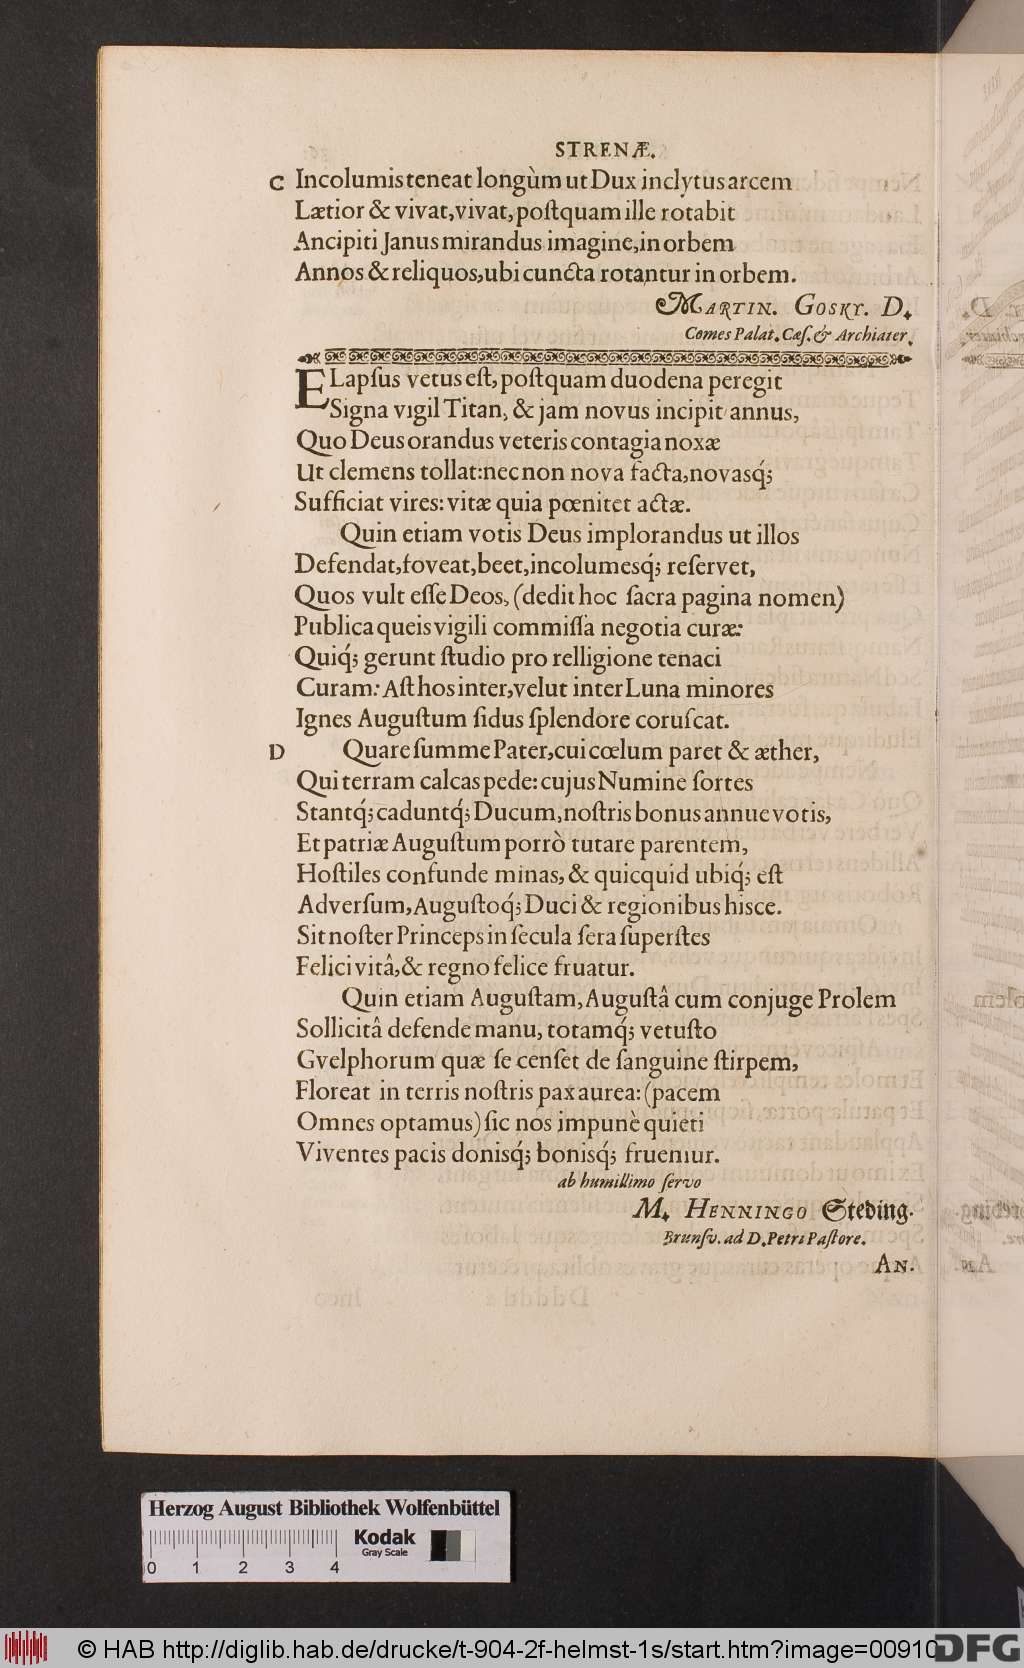 STRENÆ.
C Incolumis teneat longùm ut Dux inclytus arcem
Lætior & vivat, vivat, poſtquam ille rotabit
Ancipiti Janus mirandus imagine, in orbem
Annos & reliquos, ubi cuncta rotantur in orbem.
MARTIN. GOSKY. D.
Comes Palat. Cæſ. & Archiater.
ELapſus vetus eſt, poſtquam duodena peregit
Signa vigil Titan, & jam novus incipit annus,
Quo Deus orandus veteris contagia noxæ
Ut clemens tollat: nec non nova facta, novasq́;
Sufficiat vires: vitæ quia pœnitet actæ.
Quin etiam votis Deus implorandus ut illos
Defendat, foveat, beet, incolumesq́; reſervet,
Quos vult eſſe Deos, (dedit hoc ſacra pagina nomen)
Publica queis vigili commiſſa negotia curæ:
Quiq́; gerunt ſtudio pro relligione tenaci
Curam: Aſt hos inter, velut inter Luna minores
Ignes Auguſtum ſidus ſplendore coruſcat.
D Quare ſumme Pater, cui cœlum paret & æther,
Qui terram calcas pede: cujus Numine ſortes
Stantq́; caduntq́; Ducum, noſtris bonus annue votis,
Et patriæ Auguſtum porrò tutare parentem,
Hoſtiles confunde minas, & quicquid ubiq́; eſt
Adverſum, Auguſtoq́; Duci & regionibus hisce.
Sit noſter Princeps in ſecula ſera ſuperſtes
Felici vitâ, & regno felice fruatur.
Quin etiam Auguſtam, Auguſtâ cum conjuge Prolem
Sollicitâ defende manu, totamq́; vetuſto
Gvelphorum quæ ſe cenſet de ſanguine ſtirpem,
Floreat in terris noſtris pax aurea: (pacem
Omnes optamus) ſic nos impunè quieti
Viventes pacis donisq́; bonisq́; fruemur.
ab humillimo ſervo
M. HENNINGO Steding.
Brunſv. ad D. Petri Paſtore.
AN.
Herzog August Bibliothek Wolfenbüttel
Kodak
Gray Scale
0 1 2 3 4
© HAB http://diglib.hab.de/drucke/t-904-2f-helmst-1s/start.htm?image=00910
DFG